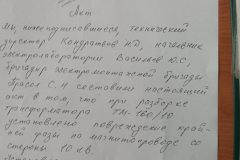 Акт
Мы, нижеподписавшиеся, технический
директор Кондратов Н.Д, начальник
электролаборатории Васильев Ю.С,
бригадир электромонтажной бригады
С.Н составили настоящий
акт в том, что при разборке
трансформатора ТМ-160/10
установлено повреждение край-
ней фазы на магнитопроводе со
стороны 10 кв.